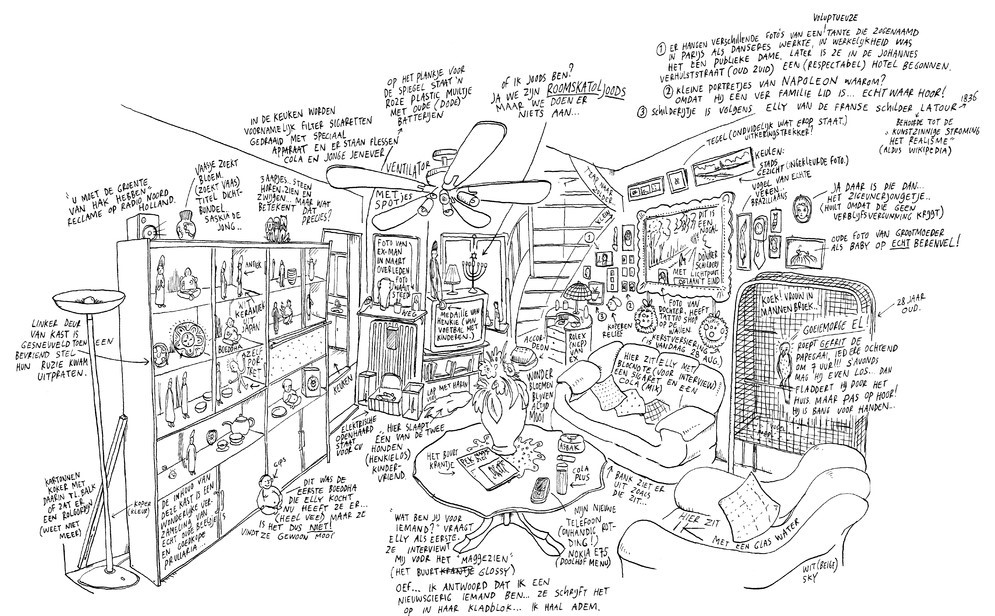 VOLUPTUEUZE
① ER HANGEN VERSCHILLENDE FOTO'S VAN EEN TANTE DIE ZOGENAAMD
IN PARIJS ALS DANSERES WERKTE, IN WERKELIJKHEID WAS
HET EEN PUBLIEKE DAME. LATER IS ZE IN DE JOHANNES
VERHULSTSTRAAT (OUD ZUID) EEN (RESPECTABEL) HOTEL BEGONNEN.
② KLEINE PORTRETJES VAN NAPOLEON WAAROM?
OMDAT HIJ EEN VER FAMILIE LID IS... ECHT WAAR HOOR!
③ SCHILDERIJTJE IS VOLGENS ELLY VAN DE FRANSE SCHILDER LATOUR
1836
BEHOORDE TOT DE
"KUNSTZINNIGE STROMING
HET REALISME"
(ALDUS WIKIPEDIA)
OF IK JOODS BEN?
JA WE ZIJN ROOMSKATOLJOODS
MAAR WE DOEN ER
NIETS AAN...
OP HET PLANKJE VOOR
DE SPIEGEL STAAT 'N
ROZE PLASTIC MUILTJE
MET OUDE (DODE)
BATTERIJEN
IN DE KEUKEN WORDEN
VOORNAMELIJK FILTER SIGARETTEN
GEDRAAID MET SPECIAAL
APPARAAT EN ER STAAN FLESSEN
COLA EN JONGE JENEVER
VENTILATOR
MET
SPOTJES
TEGEL (ONDUIDELIJK WAT EROP STAAT.)
UITKERINGSTREKKER?
KEULEN:
STADS
GEZICHT (INGEKLEURDE FOTO.)
VOGEL VAN ECHTE
VEREN.
BRAZILIAANS
JA DAAR IS DIE DAN...
HET ZIGEUNERJONGETJE..
(HUILT OMDAT DIE GEEN
VERBLIJFSVERGUNNING KRIJGT)
OUDE FOTO VAN GROOTMOEDER
ALS BABY OP ECHT BERENVEL!
"U MOET DE GROENTE
VAN HAK HEBBEN"
RECLAME OP RADIO NOORD
HOLLAND.
VAASJE ZOEKT
BLOEM.
(ZOEKT VAAS)
TITEL DICHT-
BUNDEL
SASKIA DE
JONG..
3 AAPJES.. STEEN
HOREN, ZIEN EN
ZWIJGEN... MAAR WAT
BETEKENT DAT
PRECIES?
NAAR
ZOLDER
ANTIEK
KERAMIEK
JAPAN
BOEDDHA
AZEL
POR-
TRET
KEUKEN
FOTO VAN
EX-MAN
IN MAART
OVERLEDEN
FOTO
MOET
STEEDS
WEG
MEDAILLE VAN
HENKIE (VAN
VOETBAL MET
KINDEREN..)
DIT IS
EEN
JOEKEL
DONKER
SCHILDERIJ
MET LICHTPUNT
OLIFANT EIND
KOPEREN
RELIEF
FOTO VAN
DOCHTER, HEEFT
TATTO SHOP
OP DE
WALLEN.
KERSTVERSIERING
(VANDAAG 28 AUG.)
ACCOR-
DEON
ROLEX
KNEP
VAN
EX
LINKER DEUR
VAN KAST IS
GESNEUVELD TOEN EEN
BEVRIEND STEL
HUN RUZIE KWAM
UITPRATEN.
KOEK! VROUW IN
MANNENBROEK...
GOEIEMORGE EL!
ROEPT GERRIT DE
PAPEGAAI, IEDERE OCHTEND
OM 7 UUR!!! 'S AVONDS
MAG HIJ EVEN LOS... DAN
FLADDERT HIJ DOOR HET
HUIS. MAAR PAS OP HOOR!
HIJ IS BANG VOOR HANDEN...
28 JAAR
OUD.
HIER ZIT ELLY MET
BLOCNOTE (VOOR INTERVIEW)
EN EEN SIGARET EN EEN
COLA (MIX)
WONDER
BLOEMEN
BLIJVEN
ALTIJD
MOOI
ELEKTRISCHE
OPENHAARD
STAAT
VOOR CV
"HIER SLAAPT"
ÉÉN VAN DE TWEE
HONDEN
(HENKIELOS)
KINDER-
VRIEND.
HET BUURT
KRANTJE
ASBAK
COLA
PLUS
BANK ZIET ER
UIT ZOALS
DIE ZIT...
HIER ZIT
IK
MET EEN GLAS WATER
WIT (BEIGE)
SKY
MIJN NIEUWE
TELEFOON
(ONHANDIG ROT-
DING!)
NOKIA E75
(DOOLHOF MENU)
GIPS
DIT WAS DE
EERSTE BOEDDHA
DIE ELLY KOCHT
NU HEEFT ZE ER...
(HEEL VEEL) MAAR ZE
IS HET DUS NIET!
VINDT ZE GEWOON MOOI
DE INHOUD VAN
DEZE KAST IS EEN
WONDERLIJKE VER-
ZAMELING VAN
ECHT OUDE BEELDJES
EN GOEDKOPE
PRULLARIA...
KARTONNEN
KOKER MET
DAARIN T.L. BALK
OF ZAT ER
EEN ROLGORDIJN
(WEET NIET
MEER)
KOPER
(KLEUR)
"WAT BEN JIJ VOOR
IEMAND?" VRAAGT
ELLY ALS EERSTE.
ZE INTERVIEWT
MIJ VOOR HET "MAGGEZIEN"
(HET BUURTKRANTJE GLOSSY)
OEF... IK ANTWOORD DAT IK EEN
NIEUWSGIERIG IEMAND BEN... ZE SCHRIJFT HET
OP IN HAAR KLADBLOK... IK HAAL ADEM.